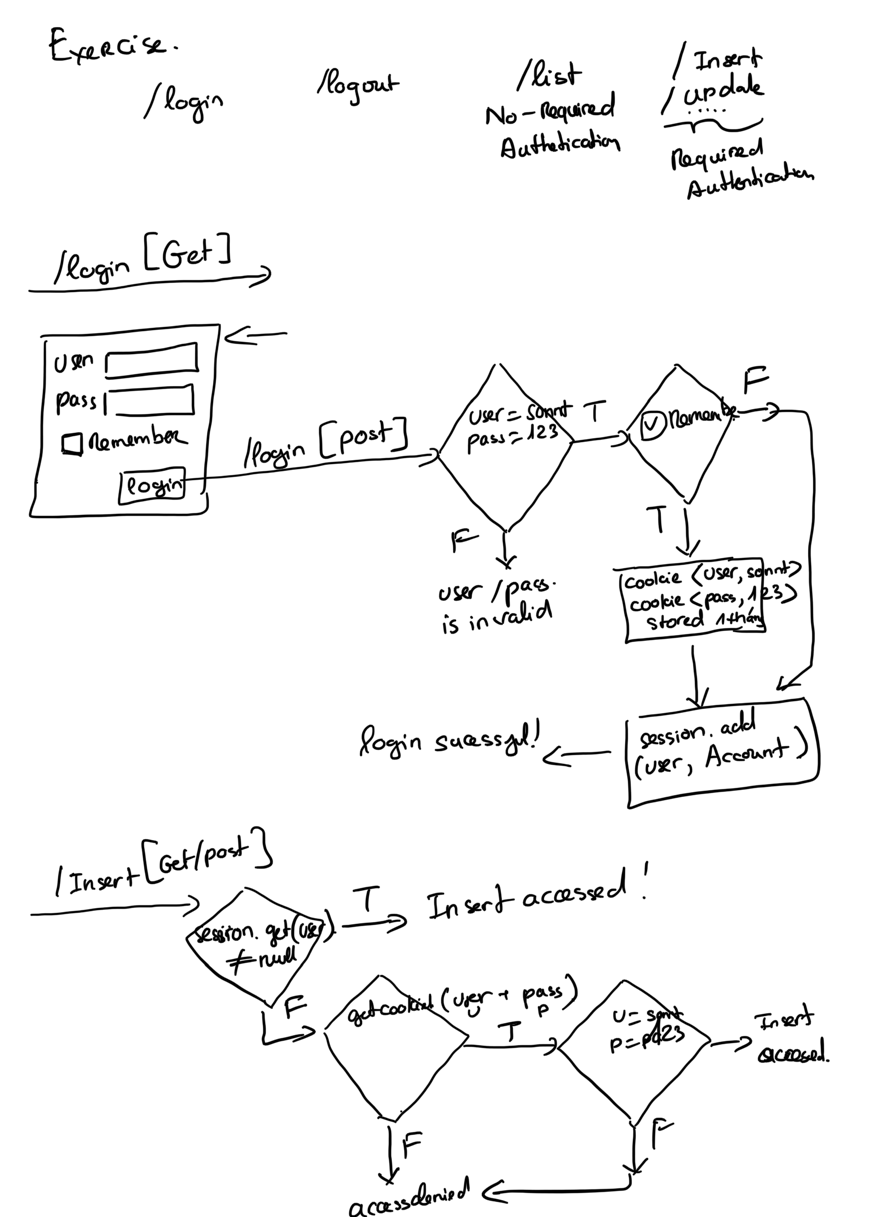 Exercise.
/login
/logout
/list
No-Required
Authetication
/Insert
/update
.....
Required
Authentication
/login [Get]
user
pass
Remember
login
/login [post]
user = sonnt
pass = 123
T
F
user/pass.
is invalid
v Remember
F
T
cookie <user, sonnt>
cookie <pass, 123>
stored 1 tháng
session.add
(user, Account)
login sucessful!
/Insert [Get/post]
session.get(user)
≠ null
T
Insert accessed!
F
getcookies (user + pass)
u
p
T
F
u = sonnt
p = 123
Insert
accessed.
F
access denied